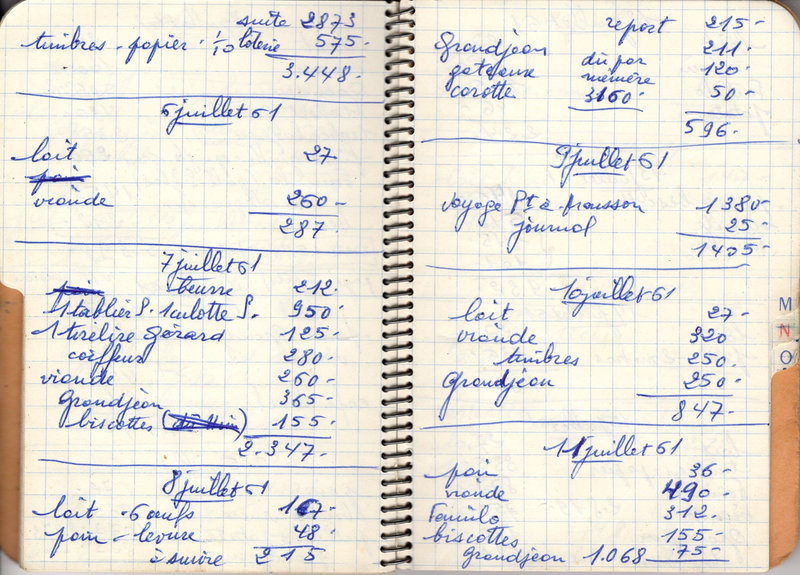 suite 2873
timbres - papier - 1/10 loterie 575-
3.448-
6 juillet 61
lait 27
pain
viande 260-
287-
7 juillet 61
pain beurre 212-
1 tablier S. 1 culotte S. 950-
1 tirelire Gérard 125-
coiffeur 280-
viande 260-
Grandjean 365-
biscottes 155-
2.347-
8 juillet 61
lait - 6 oeufs 167-
pain - levure 48-
à suivre 215
report 215-
Grandjean 211-
gateaux dû par 120-
carotte mémère 50-
3160-
596-
9 juillet 61
voyage Pt à mousson 1380-
journal 25-
1405-
10 juillet 61
lait 27-
viande 320
timbres 250-
Grandjean 250-
847-
11 juillet 61
pain 36-
viande 490-
Familo 312-
biscottes 155-
Grandjean 1.068 75-
M
N
O